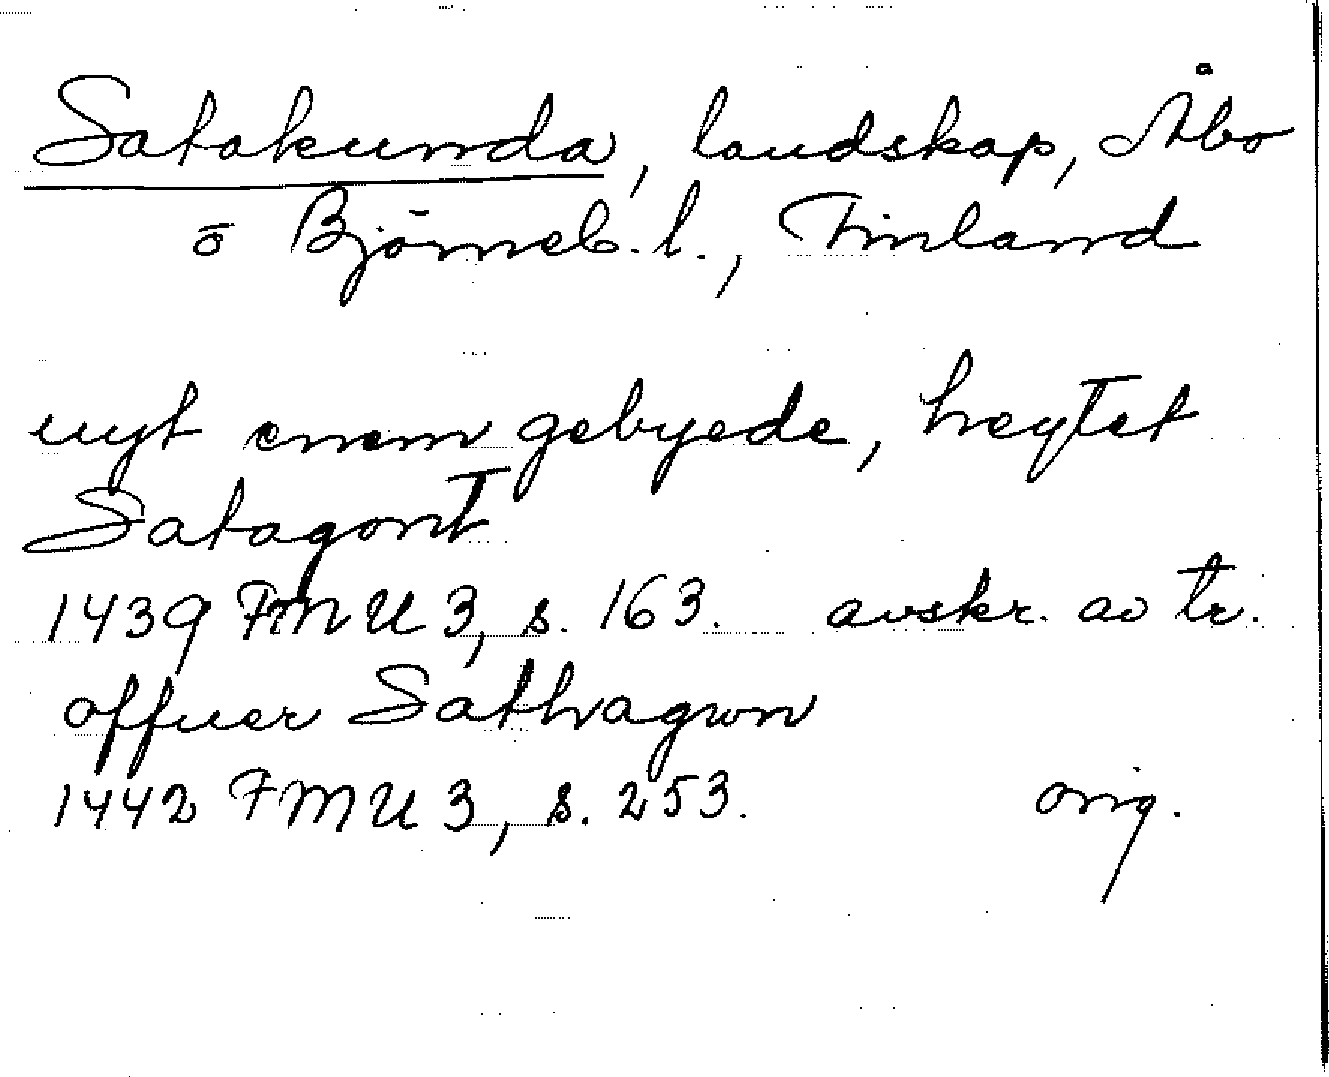 Satakunda, landskap, Åbo
o Björneb. l., Finland
uyt enem gebyede, heytet
Satagont
1439 FMU 3, s. 163. avskr. av tr.
offuer Sathagwn
1442 FMU 3, s. 253. orig.